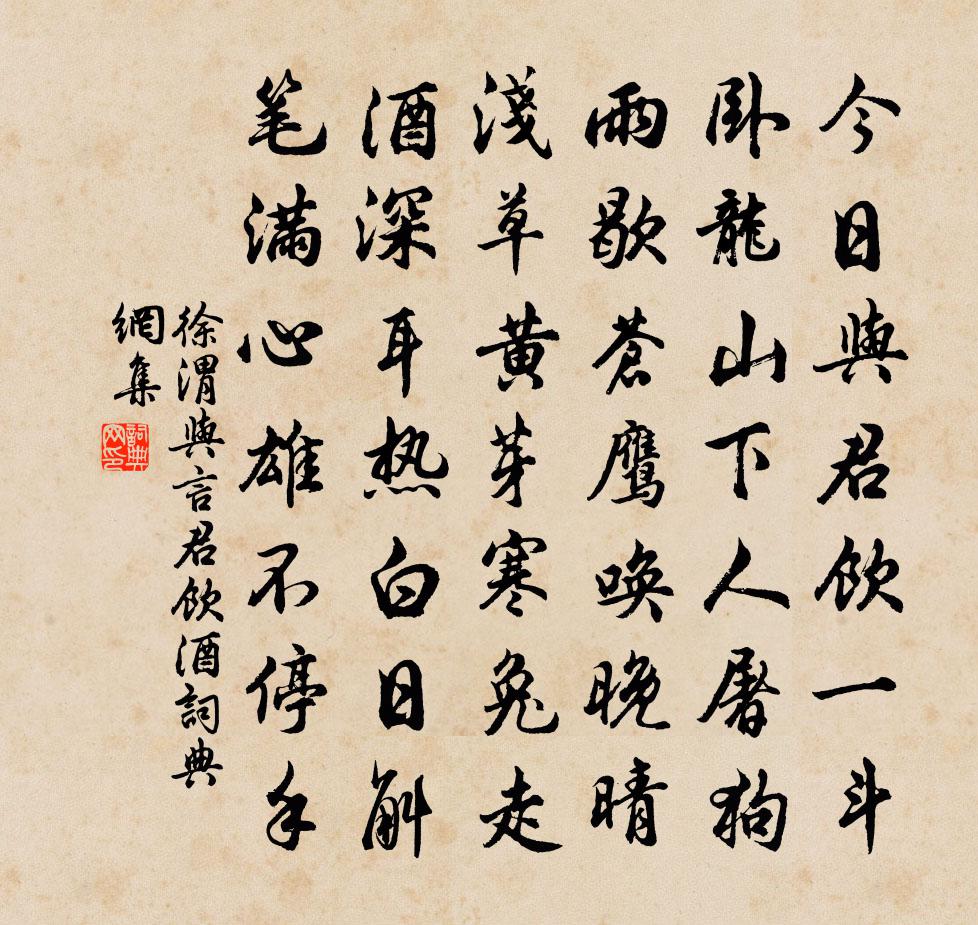 今日與君飲一斗
卧龍山下人屠狗
雨歇蒼鷹喚晚晴
淺草黄芽寒兔走
酒深耳热白日斛
笔满心雄不停手
徐渭與言君飲酒詞典
網集
詞典
网印